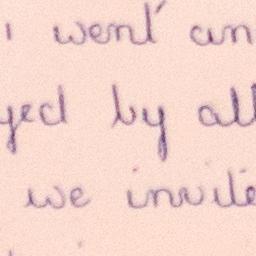 i went an
yed by all
we invite